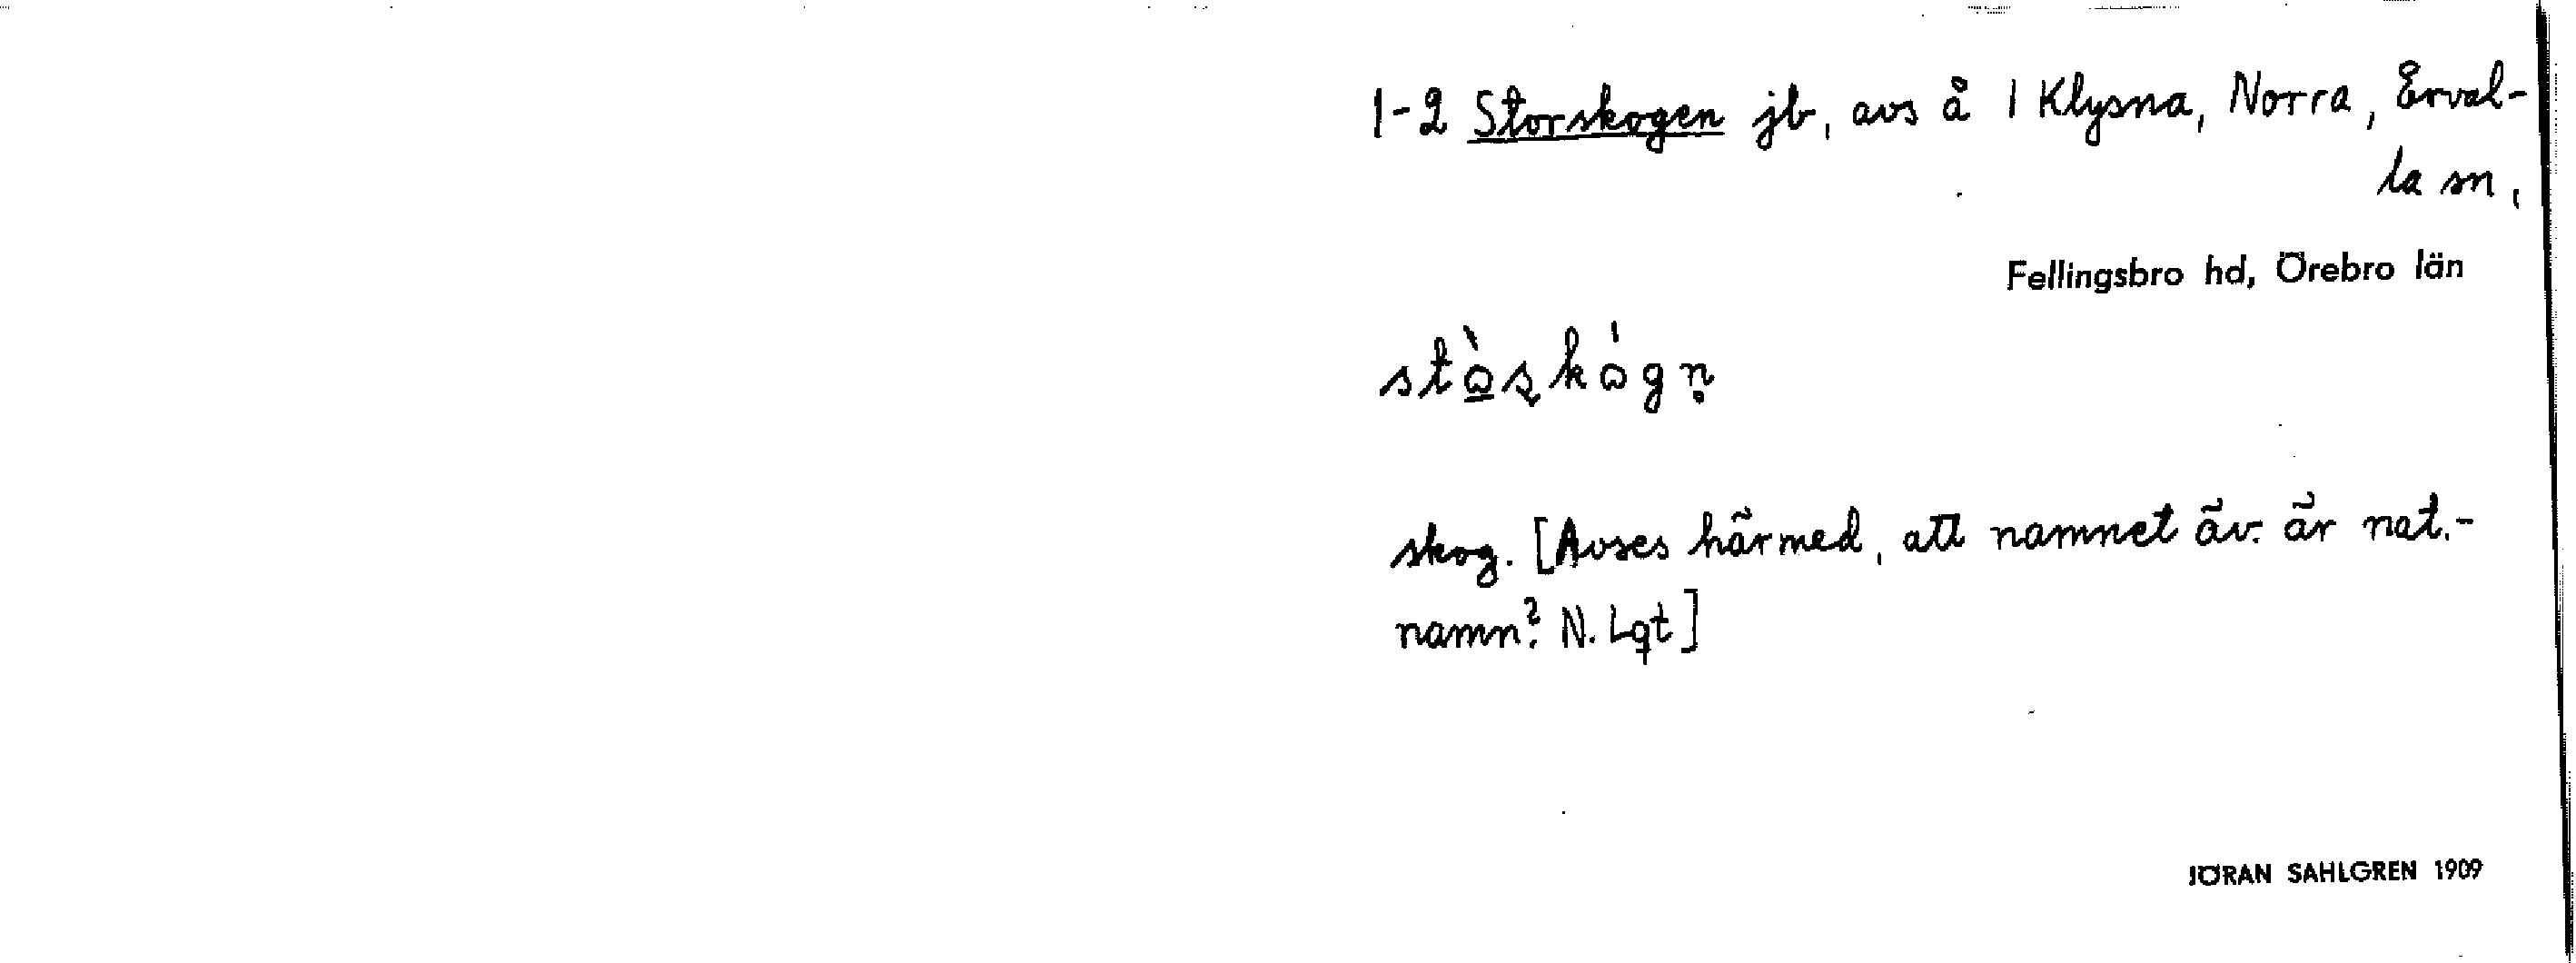 1-2 Storskogen jb, avs å 1 Klysna, Norra, Erval-
la sn,
Fellingsbro hd, Örebro län
skog. [Avses härmed, att namnet äv. är nat.-
namn? N. Lqt]
JÖRAN SAHLGREN 1909